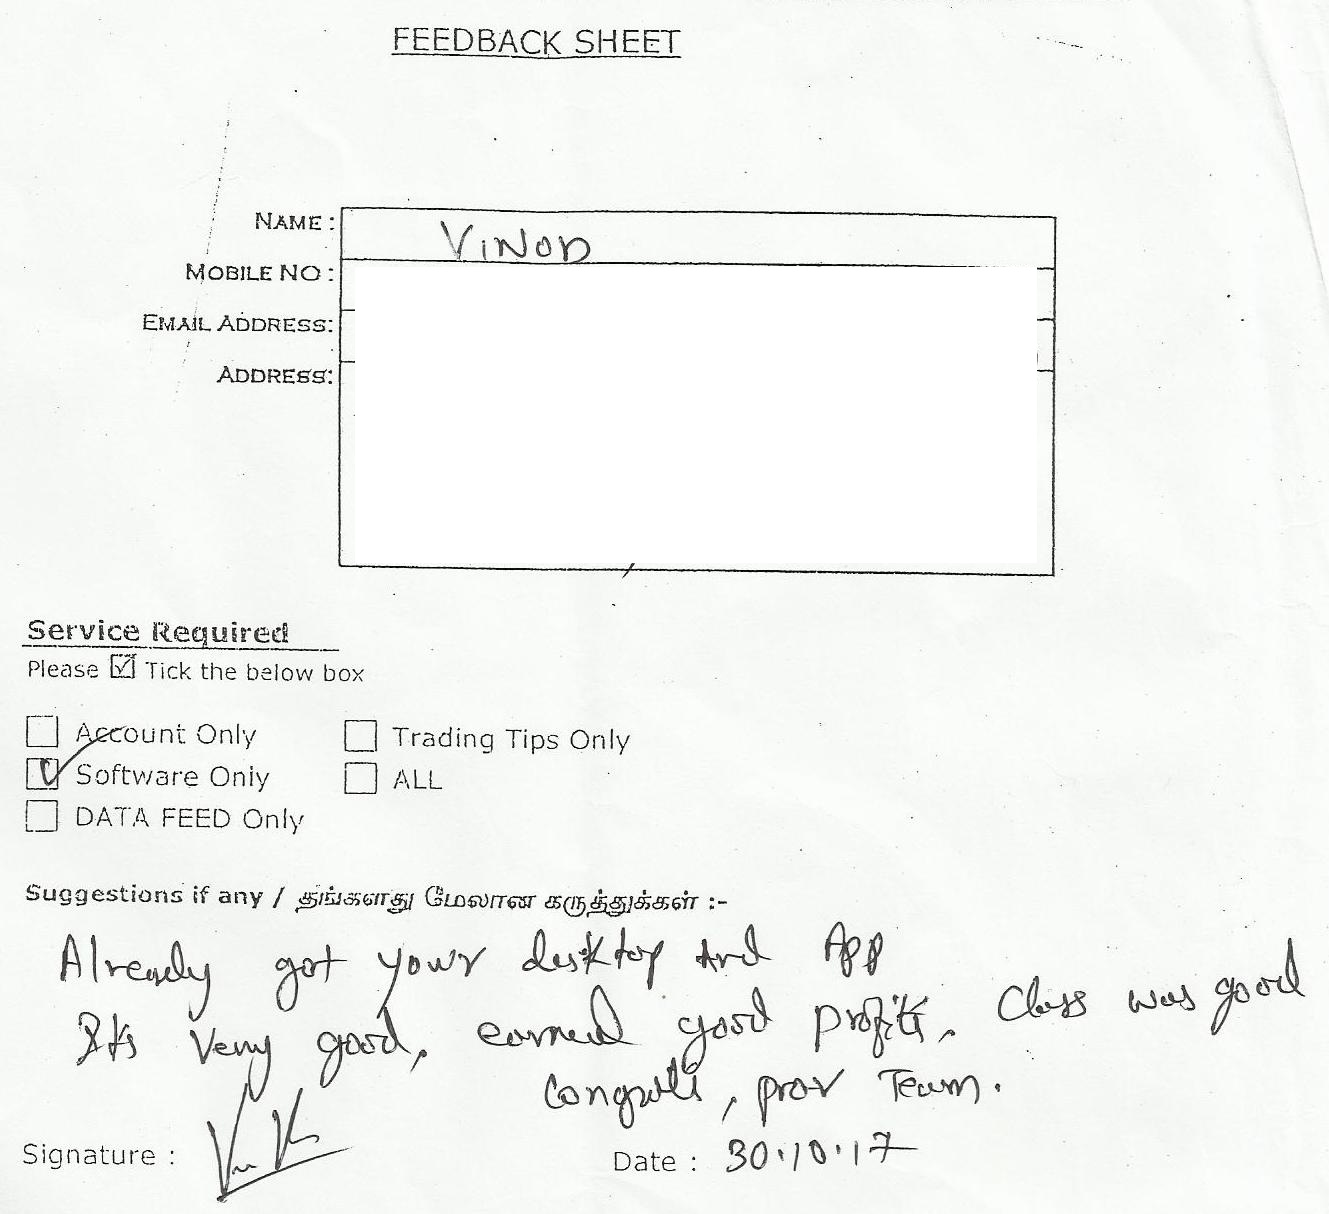 FEEDBACK SHEET
NAME : VINOD
MOBILE NO :
EMAIL ADDRESS:
ADDRESS:
Service Required
Please ☑ Tick the below box
☐ Account Only ☐ Trading Tips Only
☑ Software Only ☐ ALL
☐ DATA FEED Only
Suggestions if any / தங்களது மேலான கருத்துக்கள் :-
Already got your desktop and App
Its Very good, earned good profits. Class was good
Team.
Signature :
Date : 30.10.17